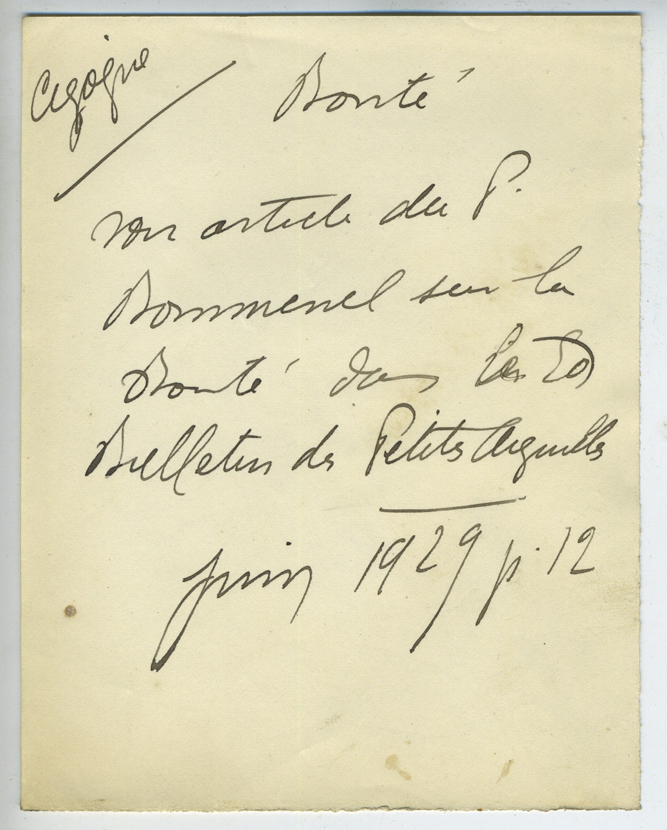 Cigogne
Bonté
voir article du P.
Bommenel sur la
Bonté dans les
Bulletin des Petits Aiguilles
juin 1929 p. 12